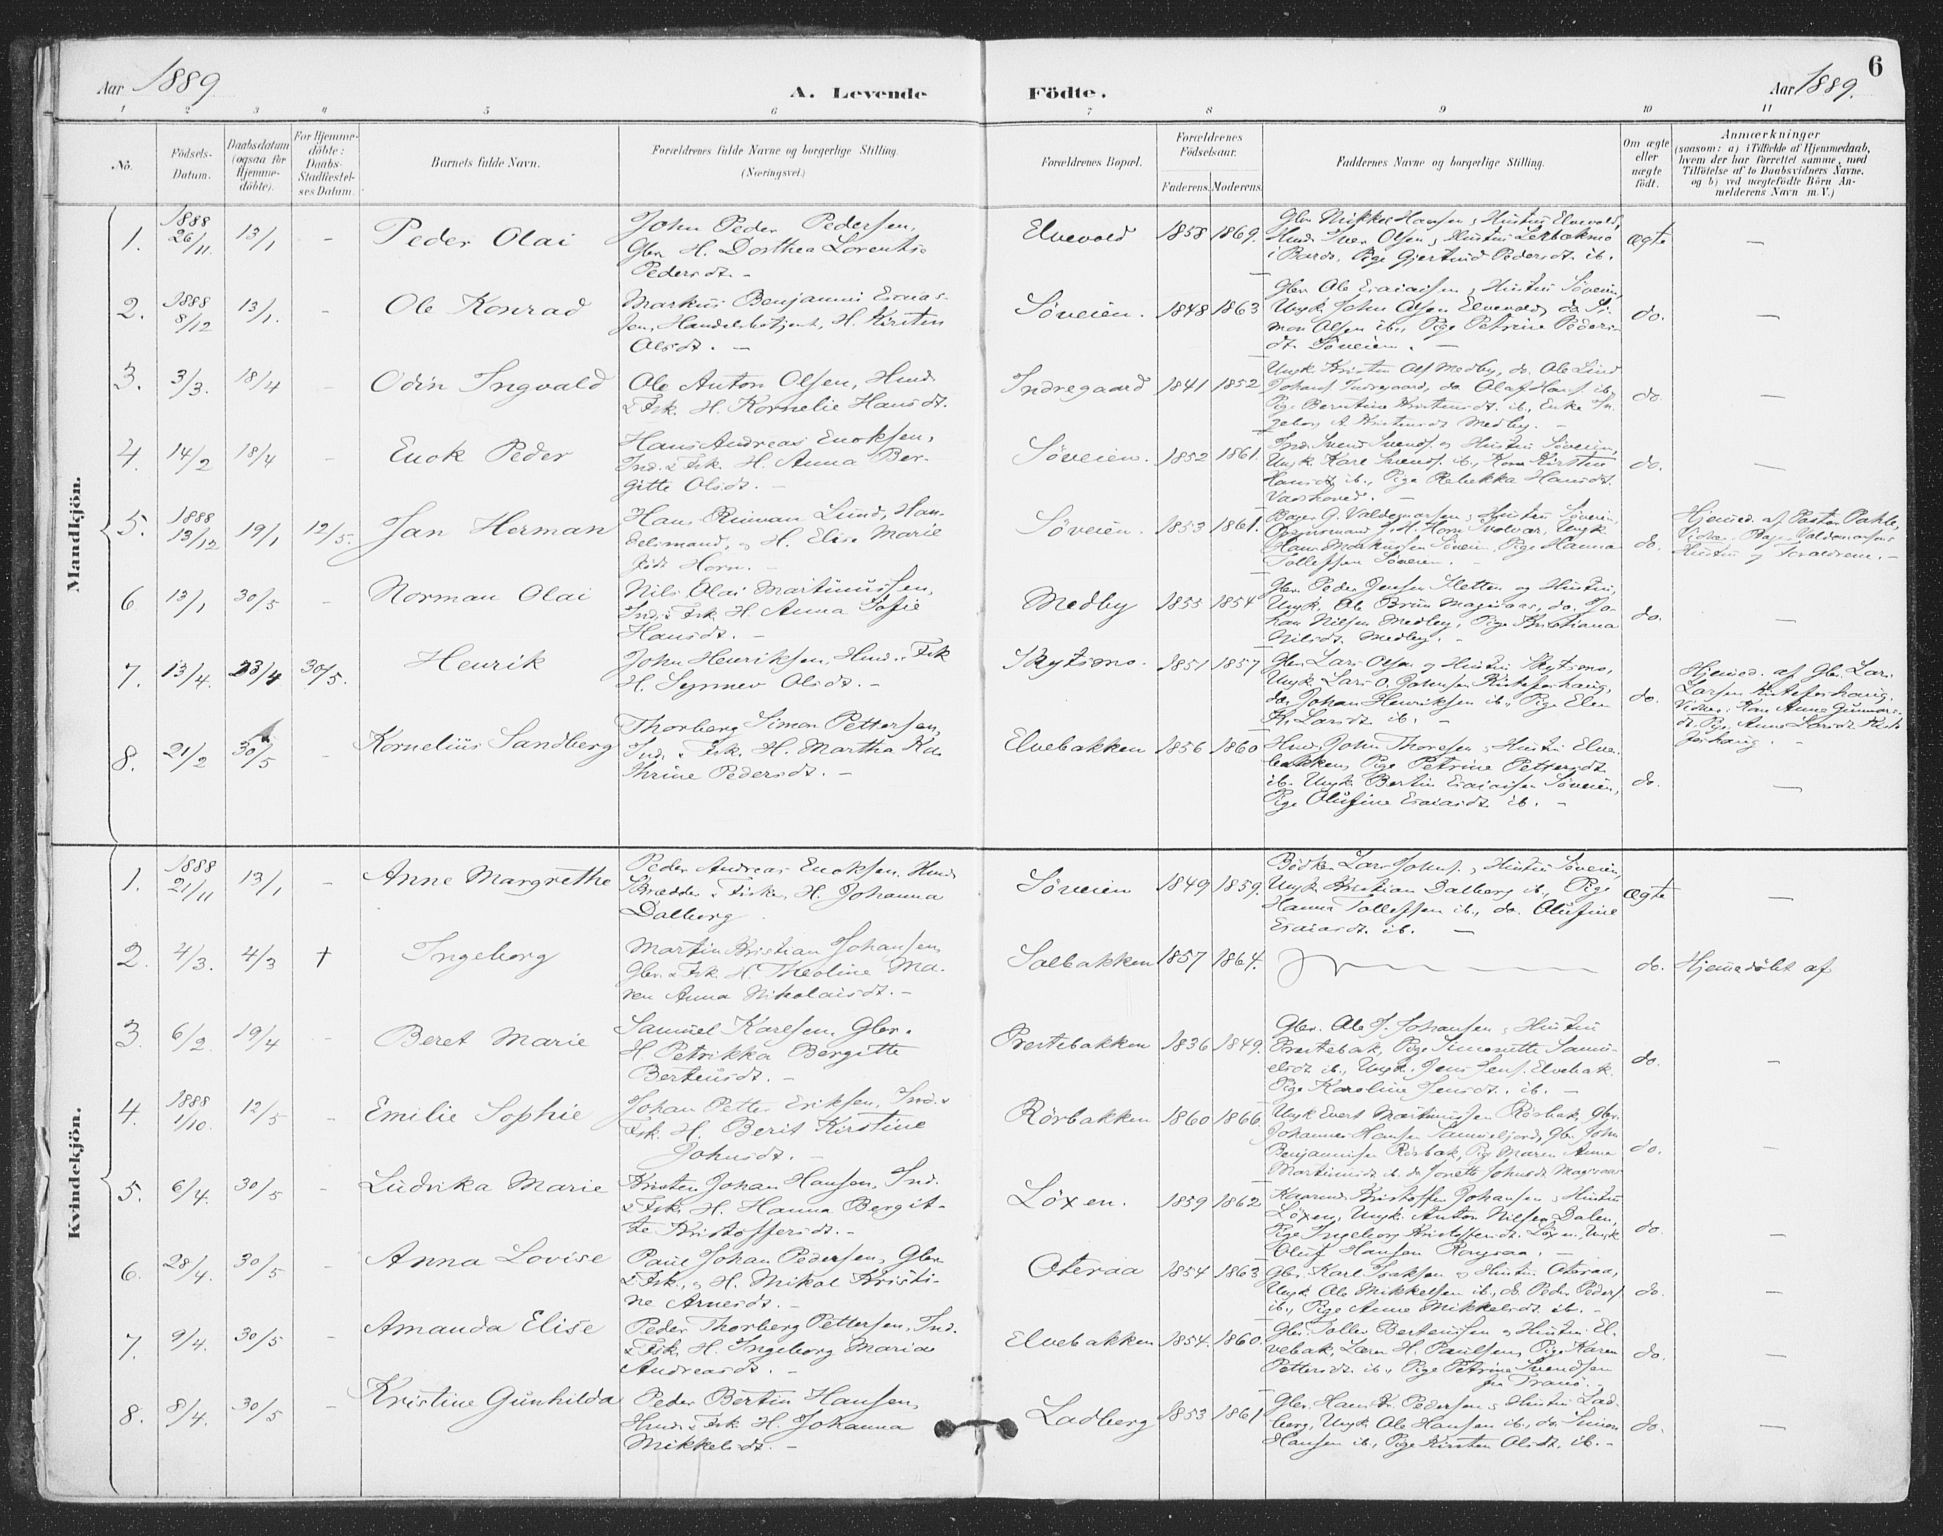 6
Aar 1889
A. Levende Födte.
Aar 1889.
1 2 3 4 5 6 7 8 9 10 11
No. Födsels-Datum. Daabsdatum (ogsaa for Hjemmedöbte). For Hjemmedöbte: Daabs-Stadfæstelses Datum. Barnets fulde Navn. Forældrenes fulde Navne og borgerlige Stilling. (Næringsvei.) Forældrenes Bopæl. Forældrenes Födselsaar. Faderens. Moderens. Faddernes Navne og borgerlige Stilling. Om ægte eller uægte födt. Anmærkninger (saasom: a) i Tilfælde af Hjemmedaab, hvem der har forrettet samme, med Tilföielse af to Daabsvidners Navne, og b) ved uægtefödte Börn Anmelderens Navn m. V.)
Mandkjön.
1. 1888 26/11. 13/1 - Peder Olai
John Peder Pedersen,
Gbr. H. Dorthea Lorentse
Pedersdt. -
Elvevold 1858 1869.
Gbr. Mikkel Hansen, Hustru Elvevold,
Hmd. Iver Olsen, Hustru
i Bardo, Pige Gjertrud Pedersdt. ib.
ægte —
2. 1888 8/12 13/1. - Ole Konrad
Markus Benjamin Esaias-
sen, Handelsbetjent, H. Kirsten
Olsdt. —
Söveien. 1848 1863
Gbr. Ole Esaiassen, Hustru Söveien,
Ungk. John Olsen Elvevold, do. Si-
mon Olsen ib., Pige Petrine Peders-
dt. Söveien. -
do. —
3. 3/3. 18/4 - Odin Ingvald
Ole Anton Olsen, Hmd.
& Fsk. H. Kornelie Hansdt.
Indregaard 1841 1852
Ungk. Kristen Medby, do. Ole Lind
Johans. Indregaard, do. Olaf Hans. ib.
Pige Berntine Kristensdt. ib., Enke In-
geborg A. Kristensdt. Medby. -
do. —
4. 14/2 18/4 - Enok Peder
Hans Andreas Enoksen,
Ind. & Fsk. H. Anna Ber-
gitte Olsdt. -
Söveien. 1852 1861.
Ind. Svend Svends. og Hustru Söveien,
Ungk. Karl Svends. ib., Kone Kirsten
Hansdt. ib., Pige Rebekka Hansdt.
do. —
5. 1888 13/12 19/1 12/5. Jan Herman
Hans Lund, Han-
delsmand, og H. Elise Marie
föd Horn. -
Söveien. 1853 1861.
Bager G. Valdemarsen, Hustru Söveien,
J. H. Horn Svolvær, Ungk.
Hans Markussen Söveien, Pige Hanna
Tollefsen Söveien. -
do.
Hjemmed. af Pastor
Vidner: Bager Valdemarsens
Hustru og Forældrene. -
6 13/1 30/5 - Norman Olai
Nils Olai Martinussen,
Ind. & Fsk. H. Anna Sofie
Hansdt. -
Medby 1855 1854
Gbr. Peder Jensen Sletten og Hustru,
Ungk. Ole Brun do. Jo-
han Nilsen Medby, Pige Kristiana
Nilsdt. Medby. -
do. —
7. 13/4. 23/4 30/5. Henrik
John Henriksen, Hmd. & Fsk.
H. Synnev Olsdt. -
1851 1857
Gbr. Lars Olsen og Hustru
Ungk. Lars O. Johnsen Kistefoshaug,
do. Johan Henriksen ib., Pige Elen
K. Larsdt. ib. -
do.
Hjemmed. af Gbr. Lars
Larsen Kistefoshaug.
Vidner: Kone Anne Gunnars-
dt. Pige Anne Larsdt. Kiste-
foshaug. -
8. 21/2 30/5 - Kornelius Sandberg
Thorberg Simon Pettersen,
Ind. & Fsk. H. Martha Ka-
thrine Pedersdt. -
Elvebakken 1856 1860
Hmd. John Thoresen, Hustru Elve-
bakken, Pige Petrine Pettersdt.
ib. Ungk. Bertin Esaiassen Söveien,
Pige Olufine Esaiasdt. ib. -
do. —
Kvindekjön.
1. 1888 21/11 13/1 - Anne Margrethe
Peder Andreas Enoksen, Hmd.
& Fisker, H. Johanna
Dalberg
Söveien 1849 1859.
Bödker Lars Johns., Hustru Söveien,
Ungk. Kristian Dalberg ib., Pige
Hanna Tollefsen ib., do. Olufine
Esaiasdt. ib. -
ægte —
2. 4/3. 4/3 + Ingeborg
Martin Kristian Johansen,
Gbr. & Fsk. H. Theoline Ma-
ren Anna Nikolaisdt. -
Salbakken 1857 1864.
do. Hjemmedöbt af
3. 6/2. 19/4 - Beret Marie
Samuel Karlsen, Gbr.
H. Petrikka Bergitte
Berteusdt. -
Prestebakken 1836 1849.
Gbr. Ole J. Johansen, Hustru
Prestebak., Pige Simonette Samu-
elsdt. ib., Ungk. Jens Jens. Elvebak.
Pige Karoline Jensdt. ib. -
do. —
4. 1888 1/10. 12/5 - Emilie Sophie
Johan Petter Eriksen, Ind. &
Fsk. H. Berit Kirstine
Johnsdt. -
Rörbakken 1860 1866.
Ungk. Evert Martinussen Rörbak, Gbr.
Johannes Hansen Gbr. John
Benjaminsen Rörbak, Pig. Maren Anna
Martinusdt. ib. do. Jonette Johnsdt.
do. -
5. 6/4. 30/5 - Ludvika Marie
Kristen Johan Hansen, Ind.
& Fsk. H. Hanna Bergit-
te Kristoffersdt. -
Löxen. 1859 1862
Kristoffer Johansen, Hustru
Löxen, Ungk. Anton Nilsen Dalen,
Pige Ingeborg Kristoffersdt. Löxen, Ungk.
Oluf Hansen -
do. —
6. 28/4. 30/5 - Anna Lovise
Paul Johan Pedersen, Gbr.
& Fsk., og H. Mikal Kristi-
ne Arnesdt. -
Oteraa 1854 1863
Gbr. Karl Isaksen og Hustru Oteraa,
Ungk. Ole Mikkelsen ib., do. Peder Peders.
ib., Pige Anne Mikkelsdt. ib. -
do. —
7. 9/4. 30/5 - Amanda Elise
Peder Thorberg Pettersen, Ind.
& Fsk. H. Ingeborg Maria
Andreasdt. -
Elvebakken 1854. 1860.
Gbr. Tollef Berteussen og Hustru El-
vebak, H. Paulsen, Pige Karen
Pettersdt. ib., Pige Petrine Svendsen
fra Tranö. -
do. —
8. 8/4. 30/5 - Kristine Gunhilda
Peder Bertin Hansen,
Hmd. & Fsk. H. Johanna
Mikkelsdt. -
Ladberg 1853 1861
Gbr. Hans K. Pedersen, Hustru Lad-
berg, Ungk. Ole Hansen ib., do. Simon
Hansen ib., Pige Kirsten Olsdt. ib. -
do. —